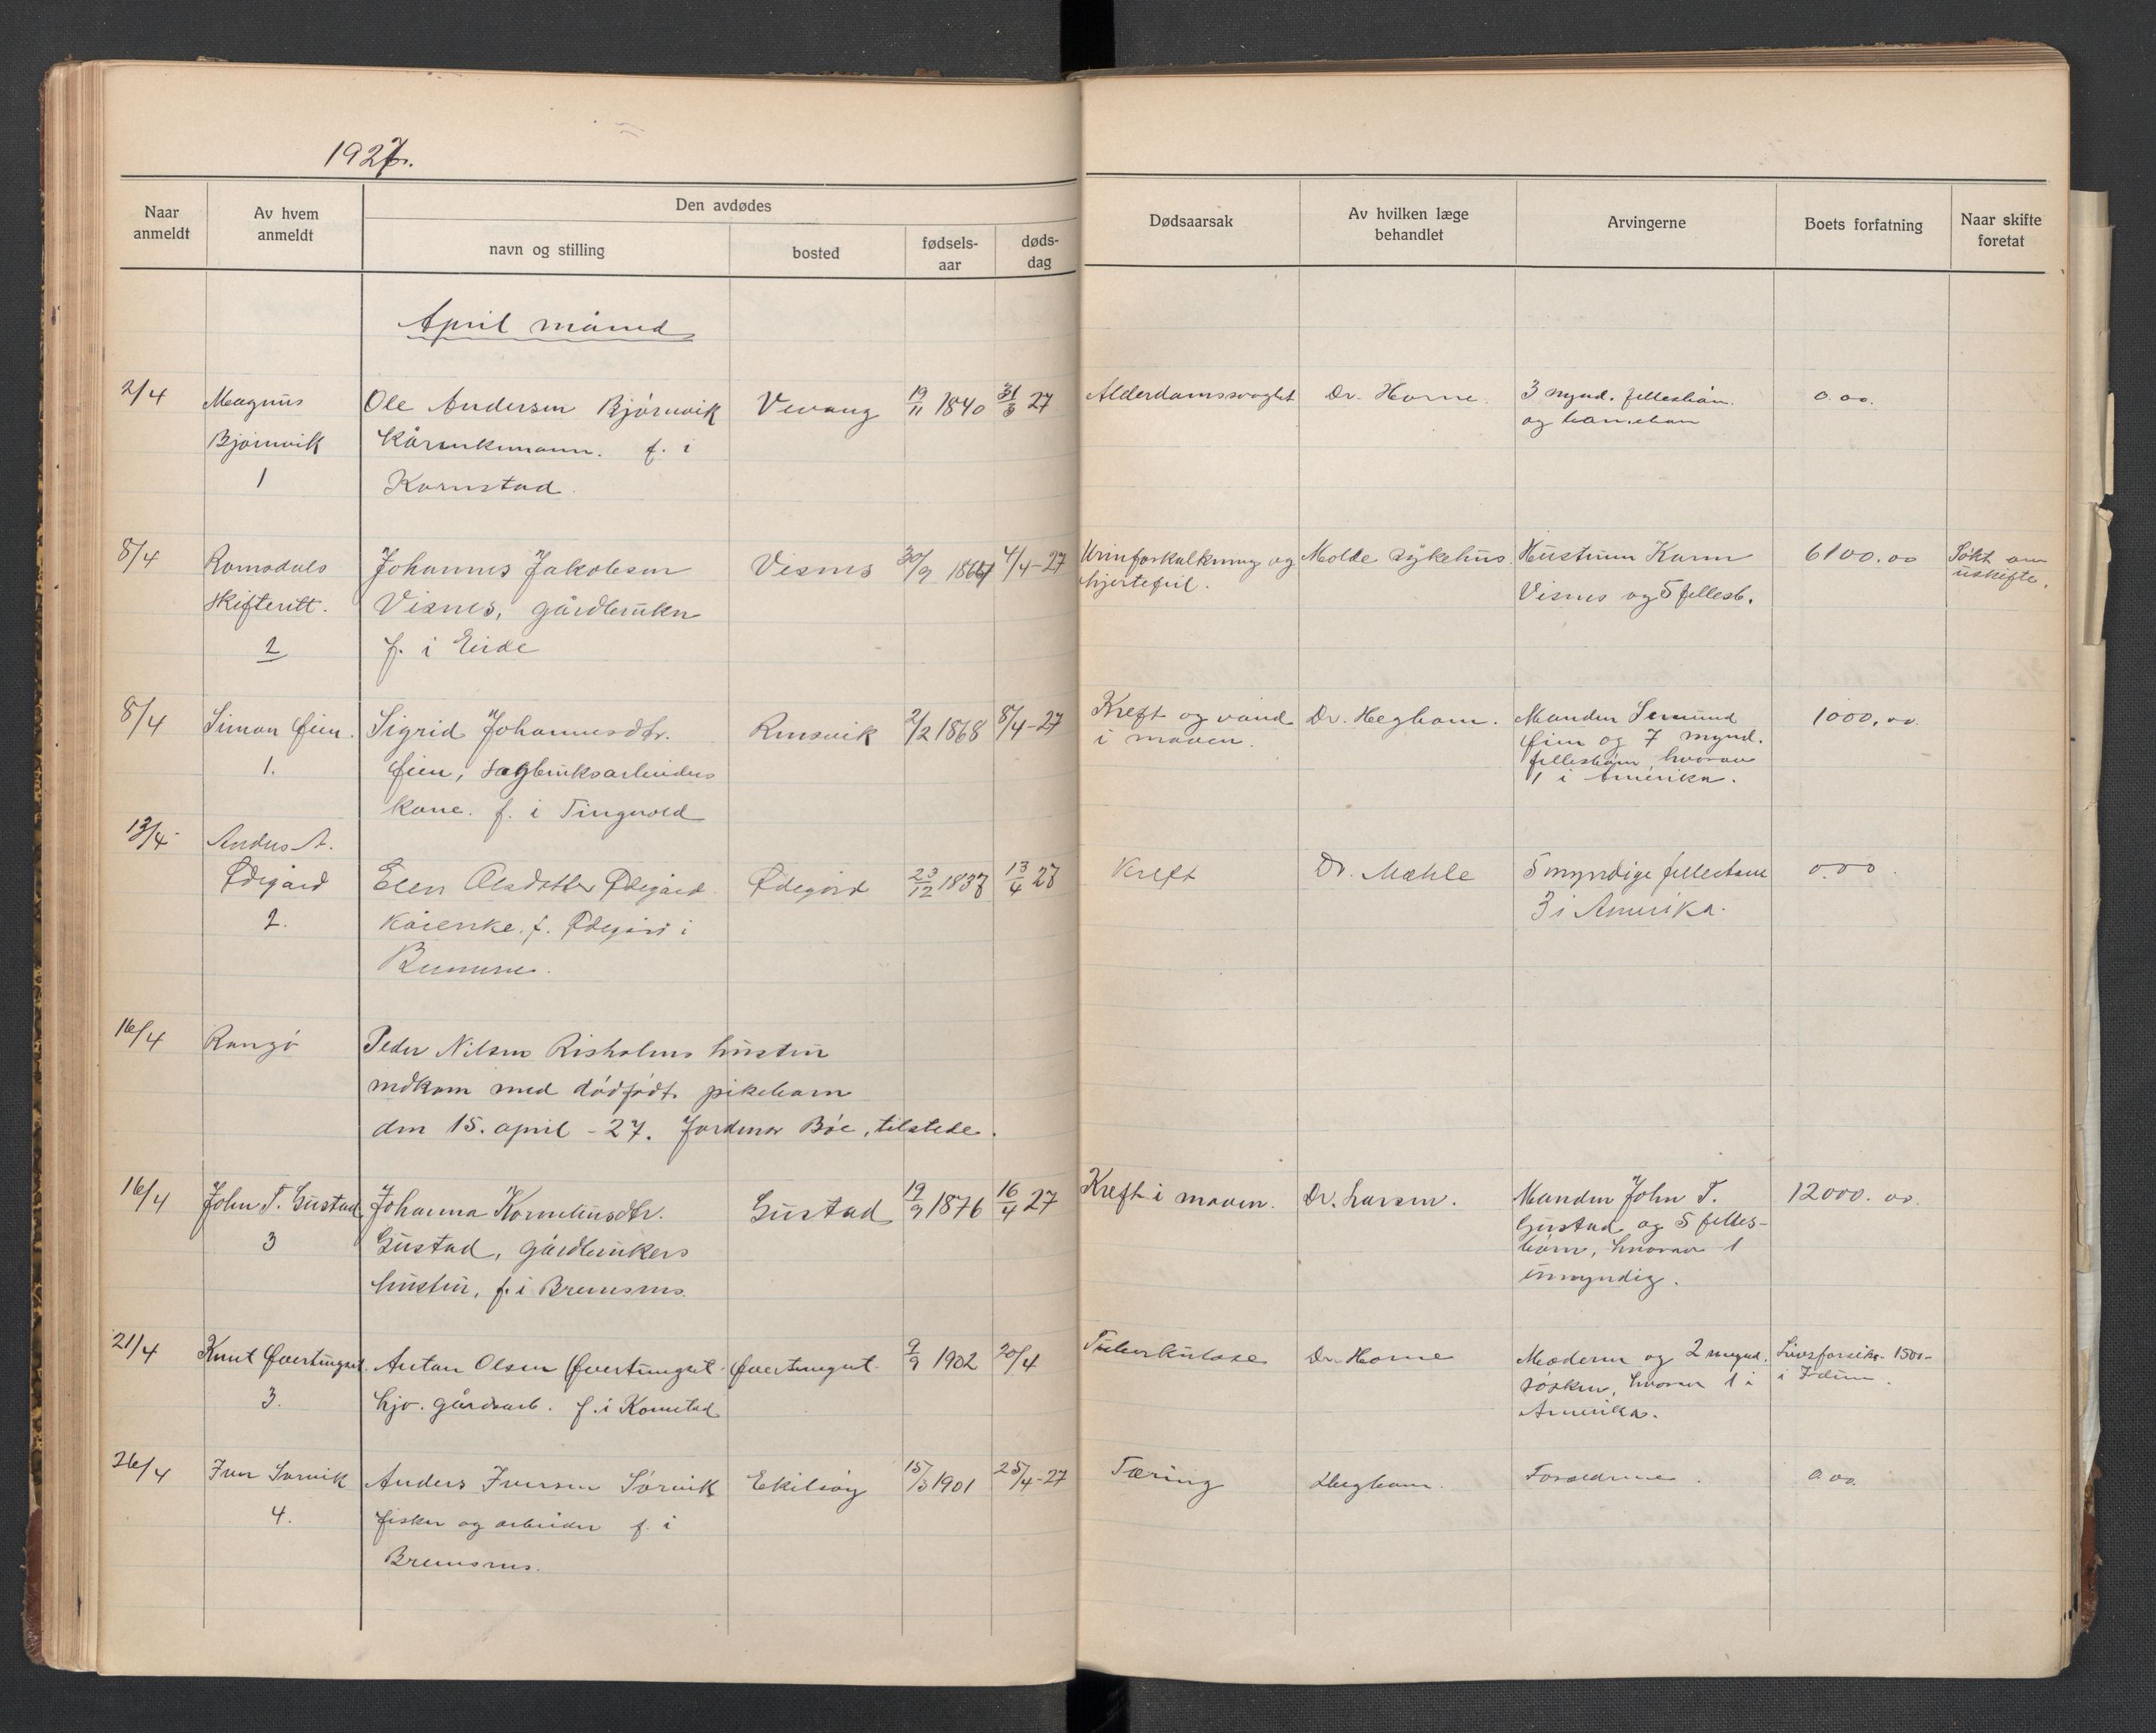 1927.
Naar anmeldt
Av hvem anmeldt
Den avdødes
navn og stilling
bosted
fødsels-aar
døds-dag
Dødsaarsak
Av hvilken læge behandlet
Arvingerne
Boets forfatning
Naar skifte foretat
April måned
2/4 Magnus Ole Andersen Bjørnvik Vevang 19/11 1840 31/3 27 Dr. Horne. 3 mynd. fellesbørn. 0.00.
Bjørnvik Kårenkemann. f. i og barnebarn
1 Kornstad.
8/4 Romsdals Johannes Jakobsen Visnes 30/9 4/4-27 Urinforkalkning og Molde sykehus. Hustruen Karen 6100.00 Søkt om
skifterett. Visnes, gårdbruker hjertefeil. Visnes og 5 fellesb. uskifte.
2 f. i Eide
8/4 Simon Øien. Sigrid Johannesdtr. Rensvik 2/2 1868 8/4-27 Kreft og vand Dr. Hegbom. Manden 1000.00
1. Øien, sagbruksarbeiders i maven. Øien og 7 mynd.
kone. f. i Tingvold fellesbørn, hvorav
1 i Amerika.
13/4 Anders A.
Ødegård Elen Olsdatter Ødegård Ødegård 23/12 1837 13/4 27 Kreft Dr. Mæhle 5 myndige fellesbarn 0.00.
2. kårenke. f. Ødegård i 3 i Amerika.
16/4 Rangø Peder Nilsen Risholms hustru
nedkom med dødfødt pikebarn
den 15. april -27. Jordmor Bøe, tilstede.
16/4 John T. Gustad Johanna Korneliusdtr. Gustad 19/9 1876 16/4 27 Kreft i maven. Dr. Larsen. Manden John T. 12000.00.
3 Gustad, gårdbrukers Gustad og 5 felles-
hustru, f. i Bremsnes. børn, hvorav 1
umyndig.
21/4 Knut Øvertungset Anton Olsen Øvertungset. Øvertungset. 9/9 1902 20/4 Tuberkulose Dr. Horne Moderen og 2 mynd. Livsforsikr. 1500-
3. hjv. gårdsarb. f. i Kornstad søsken, hvorav 1 i i Idun.
Amerika.
26/4 Iver Sørvik Anders Iversen Sørvik Ekilsøy 15/3 1901 25/4-27 Tæring Hegbom. Forældrene. 0.00.
4. fisker og arbeider f. i
Bremsnes.